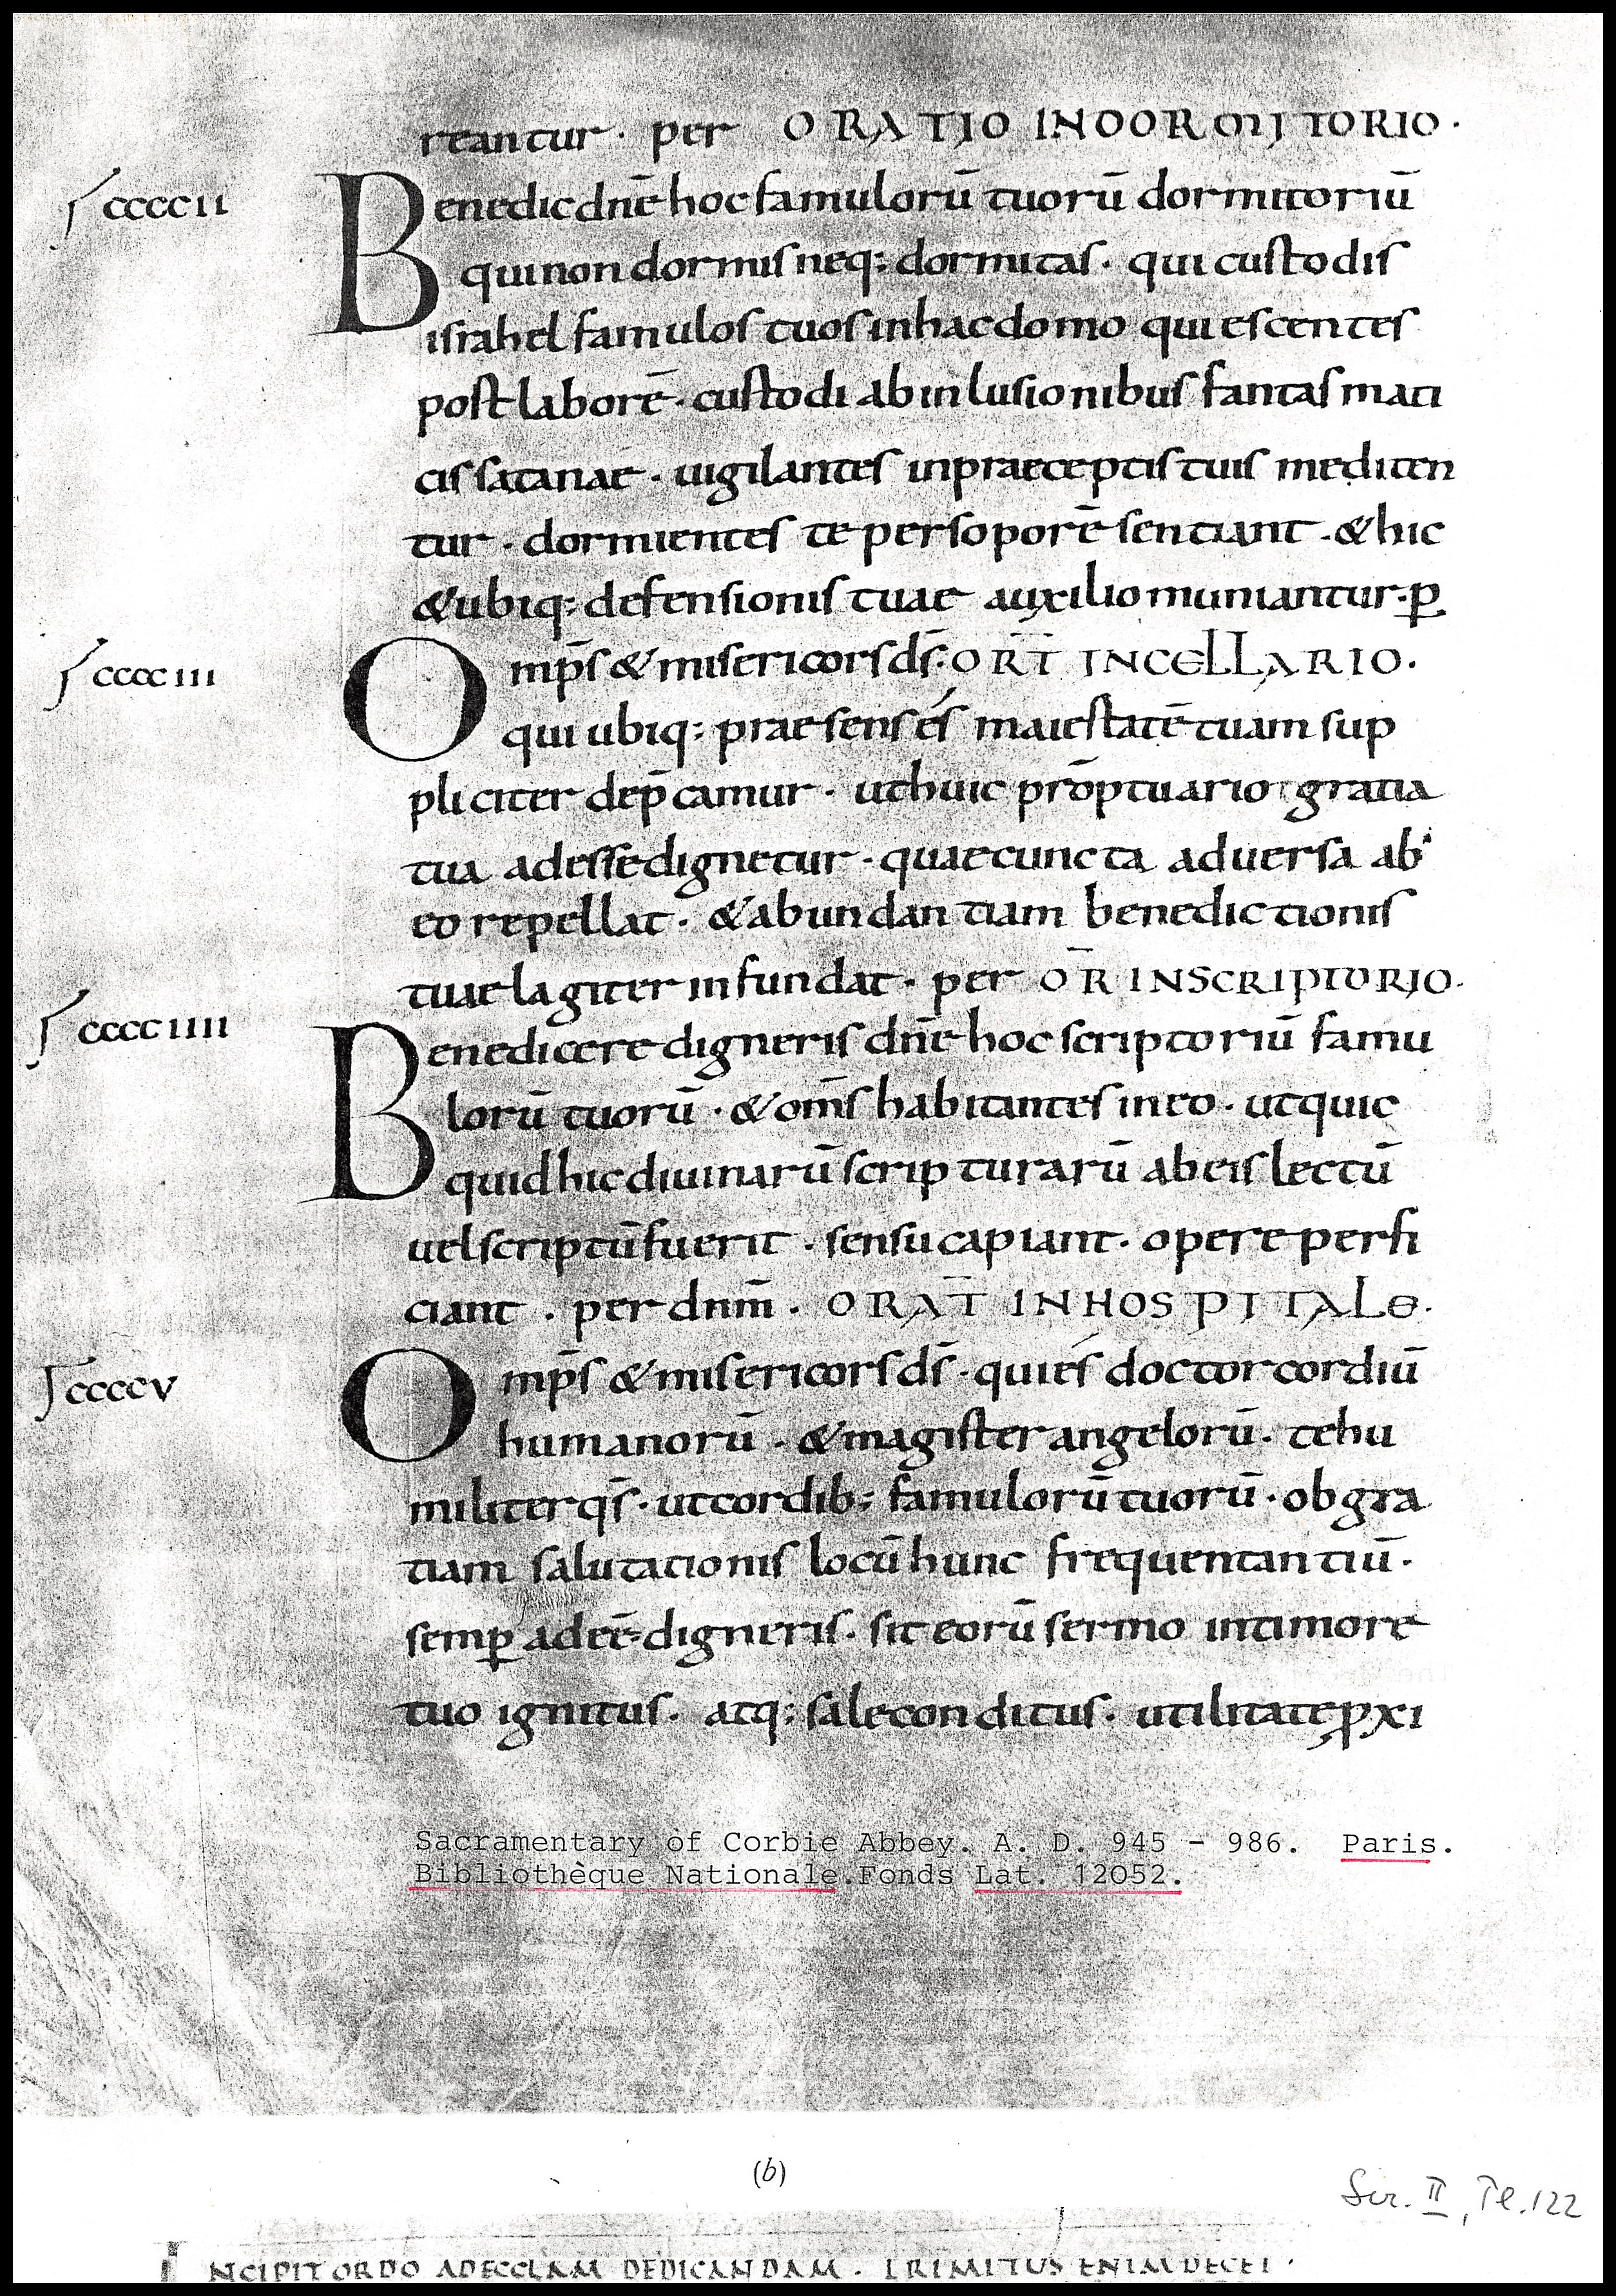 reantur · per ORATIO IN DORMITORIO ·
ſ ccccii
Benedic dn̄e hoc famulorū tuorū dormitoriū
qui non dormis neq: dormitas · qui custodis
israhel famulos tuos in hac domo quiescentes
post laborē · custodi ab inlusionibus fantasmati
cis satanae · uigilantes in praeceptis tuis mediten
tur · dormientes te per soporē sentiant · & hic
& ubiq: defensionis tuae auxilio muniantur · ꝑ
ſ cccciii
Omp̄s & misericors ds̄ · ORT̄ IN CELLARIO ·
qui ubiq: praesens és maiestatē tuam sup
pliciter dep̄camur · ut huic prōptuario gratia
tua adesse dignetur · quae cuncta aduersa ab
eo repellat · & abundantiam benedictionis
tuae lagiter infundat · per OR̄ IN SCRIPTORIO ·
ſ cccciiii
Benedicere digneris dn̄e hoc scriptoriū famu
lorū tuorū · & om̄s habitantes in eo · ut quic
quid hic diuinarū scripturarū ab eis lectū
uel scriptū fuerit · sensu capiant · opere perfi
ciant · per dnm̄ · ORAT̄ IN HOSPITALE ·
ſ ccccv
Omp̄s & misericors ds̄ · qui és doctor cordiū
humanorū · & magister angelorū · te hu
militer qs̄ · ut cordib: famulorū tuorū · ob gra
tiam salutationis locū hunc frequentantiū ·
semꝑ adeē digneris · sit eorū sermo in timore
tuo ignitus · atq: sale conditus · utilitate ꝓxi
Sacramentary of Corbie Abbey. A. D. 945 - 986. Paris.
Bibliothèque Nationale. Fonds Lat. 12052.
(b)
Scr. II, Te. 122
INCIPIT ORDO AD ECCLAM DEDICANDAM · PRIMITUS ENIM DECET ·